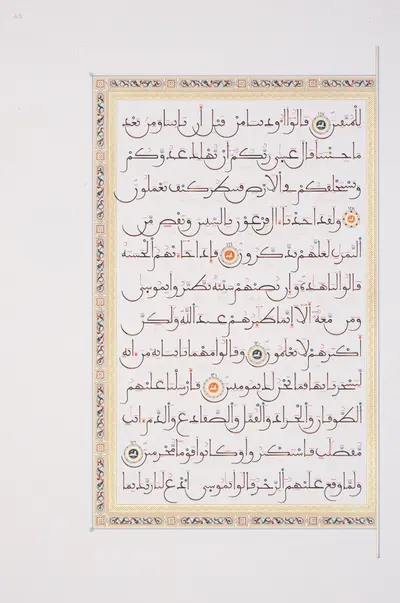 للمتقين قالوا أوذينا من قبل أن تأتينا ومن بعد
ما جئتنا قال عسى ربكم أن يهلك عدوكم
ويستخلفكم في الأرض فينظر كيف تعملون
ولقد أخذنا ءال فرعون بالسنين ونقص من
الثمرت لعلهم يذكرون فإذا جاءتهم الحسنة
قالوا لنا هذه وإن تصبهم سيئة يطيروا بموسى
ومن معه ألا إنما طئرهم عند الله ولكن
أكثرهم لا يعلمون وقالوا مهما تأتنا به من ءاية
لتسحرنا بها فما نحن لك بمومنين فأرسلنا عليهم
الطوفان والجراد والقمل والضفادع والدم ءايت
مفصلت فاستكبروا وكانوا قوما مجرمين
ولما وقع عليهم الرجز قالوا يموسى ادع لنا ربك بما